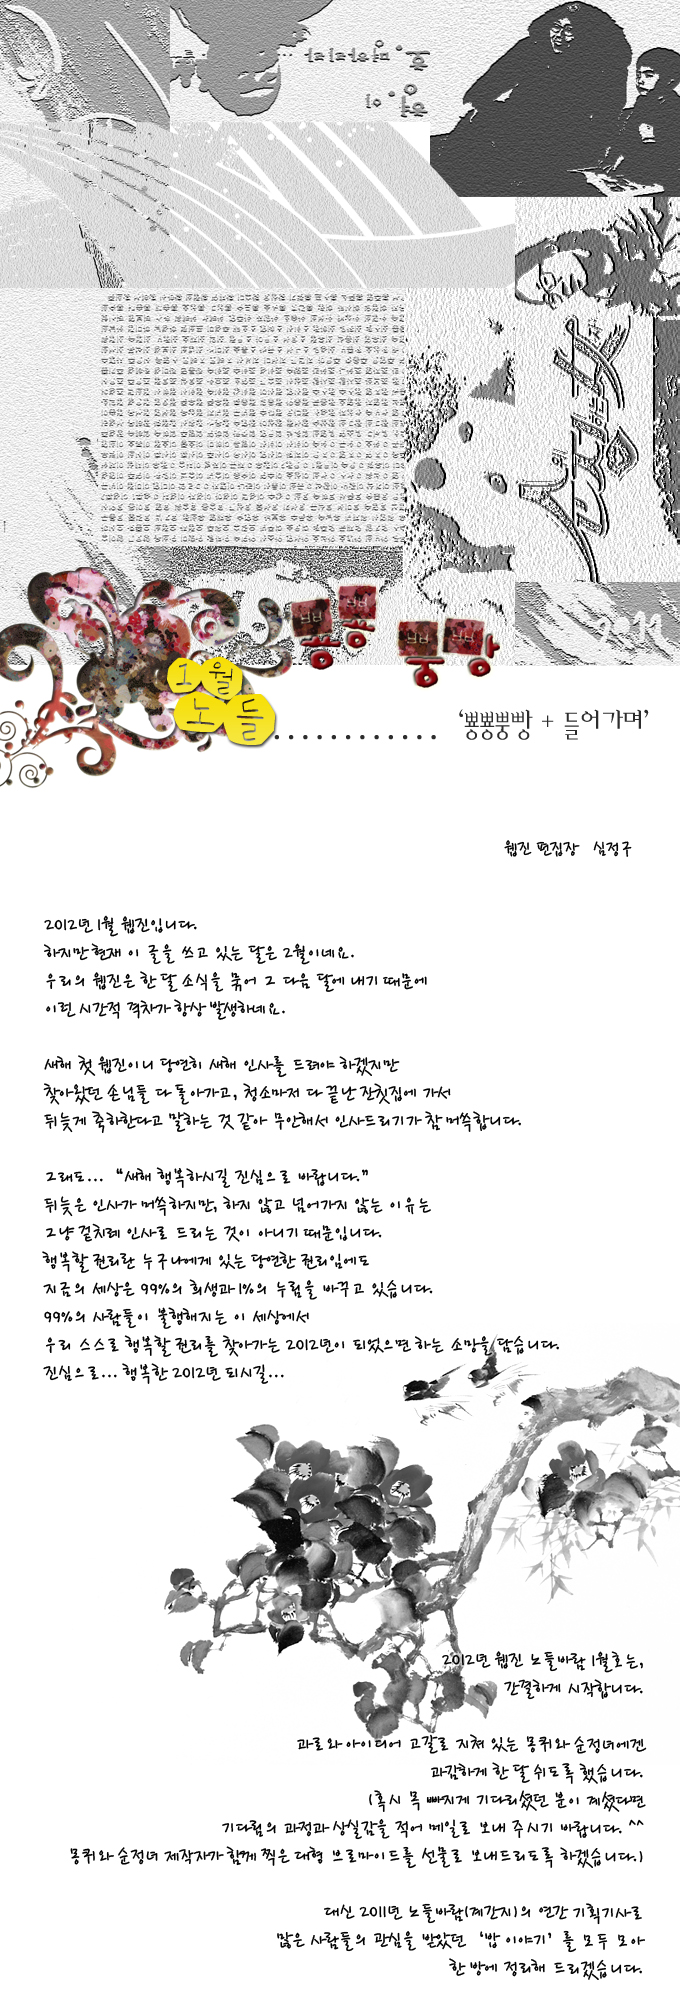 2012
뽕뽕뿡빵
1월
노들
‘뽕뽕뿡빵 + 들어가며’
웹진 편집장 심정구
2012년 1월 웹진입니다.
하지만 현재 이 글을 쓰고 있는 달은 2월이네요.
우리의 웹진은 한 달 소식을 묶어 그 다음 달에 내기 때문에
이런 시간적 격차가 항상 발생하네요.
새해 첫 웹진이니 당연히 새해 인사를 드려야 하겠지만
찾아왔던 손님들 다 돌아가고, 청소마저 다 끝난 잔칫집에 가서
뒤늦게 축하한다고 말하는 것 같아 무안해서 인사드리기가 참 머쓱합니다.
그래도... “새해 행복하시길 진심으로 바랍니다.”
뒤늦은 인사가 머쓱하지만, 하지 않고 넘어가지 않는 이유는
그냥 겉치레 인사로 드리는 것이 아니기 때문입니다.
행복할 권리란 누구나에게 있는 당연한 권리임에도
지금의 세상은 99%의 희생과 1%의 누림을 바꾸고 있습니다.
99%의 사람들이 불행해지는 이 세상에서
우리 스스로 행복할 권리를 찾아가는 2012년이 되었으면 하는 소망을 담습니다.
진심으로... 행복한 2012년 되시길...
2012년 웹진 노들바람 1월호는,
간결하게 시작합니다.
과로와 아이디어 고갈로 지쳐 있는 몽퀴와 순정녀에겐
과감하게 한 달 쉬도록 했습니다.
(혹시 목 빠지게 기다리셨던 분이 계셨다면
기다림의 과정과 상실감을 적어 메일로 보내 주시기 바랍니다. ^^
몽퀴와 순정녀 제작자가 함께 찍은 대형 브로마이드를 선물로 보내드리도록 하겠습니다.)
대신 2011년 노들바람(계간지)의 연간 기획기사로
많은 사람들의 관심을 받았던 ‘밥 이야기’를 모두 모아
한 방에 정리해 드리겠습니다.